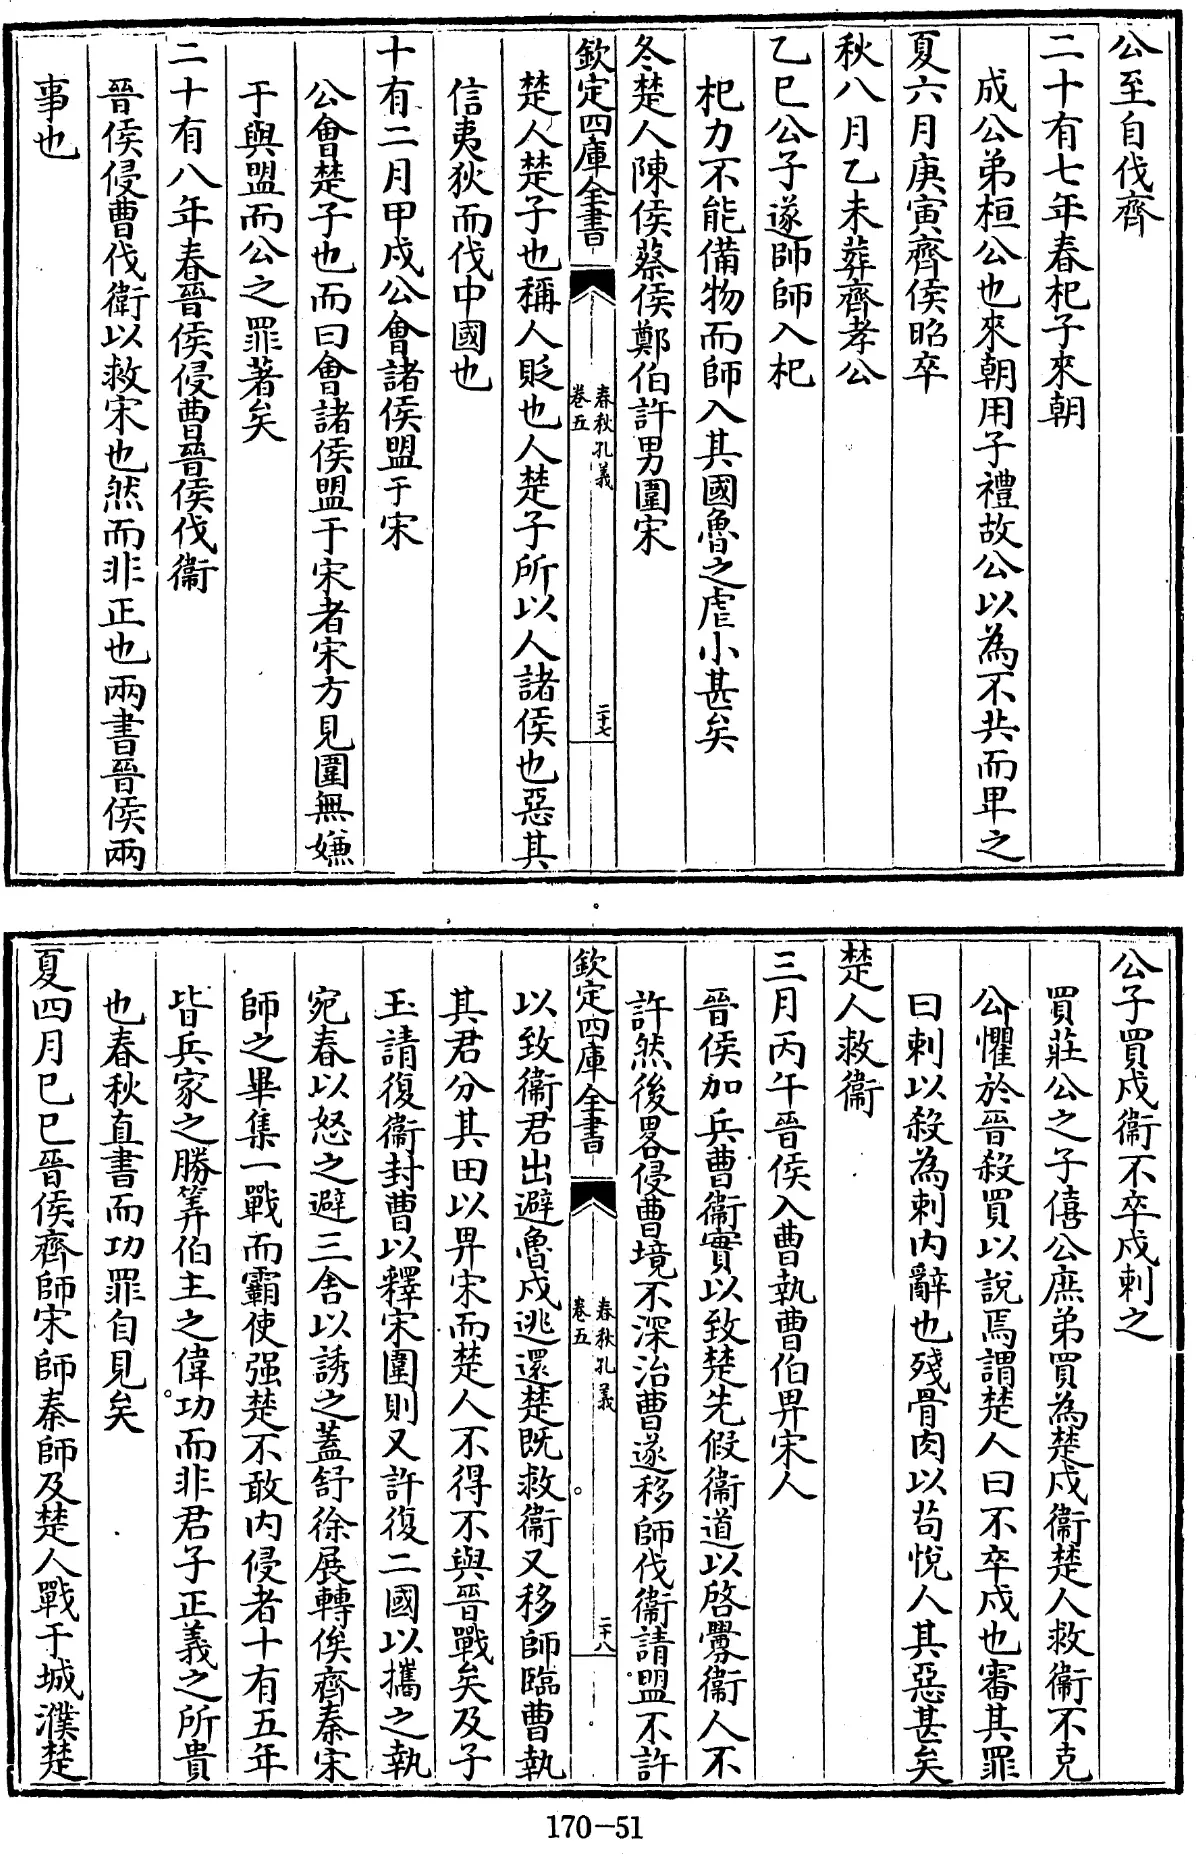 公至自伐齊
二十有七年春杞子來朝
成公弟桓公也來朝用子禮故公以為不共而卑之
夏六月庚寅齊侯昭卒
秋八月乙未葬齊孝公
乙巳公子遂師師入杞
杞力不能備物而師入其國魯之虐小甚矣
冬楚人陳侯蔡侯鄭伯許男圍宋
欽定四庫全書
春秋孔義
卷五
二十七
楚人楚子也稱人貶也人楚子所以人諸侯也惡其
信夷狄而伐中國也
十有二月甲戌公會諸侯盟于宋
公會楚子也而曰會諸侯盟于宋者宋方見圍無嫌
于與盟而公之罪著矣
二十有八年春晉侯侵曹晉侯伐衞
晉侯侵曹伐衛以救宋也然而非正也兩書晉侯兩
事也
公子買戍衞不卒戍刺之
買莊公之子僖公庶弟買為楚戍衞楚人救衞不克
公懼於晉殺買以說焉謂楚人曰不卒戍也審其罪
曰刺以殺為刺內辭也殘骨肉以苟悅人其惡甚矣
楚人救衞
三月丙午晉侯入曹執曹伯畀宋人
晉侯加兵曹衞實以致楚先假衞道以啓釁衞人不
許然後畧侵曹境不深治曹遂移師伐衞請盟不許
欽定四庫全書
春秋孔義
卷五
二十八
以致衞君出避魯戍逃還楚既救衞又移師臨曹執
其君分其田以畀宋而楚人不得不與晉戰矣及子
玉請復衞封曹以釋宋圍則又許復二國以攜之執
宛春以怒之避三舍以誘之蓋舒徐展轉俟齊秦宋
師之畢集一戰而霸使强楚不敢內侵者十有五年
皆兵家之勝筭伯主之偉功而非君子正義之所貴
也春秋直書而功罪自見矣
夏四月己巳晉侯齊師宋師秦師及楚人戰于城濮楚
170-51